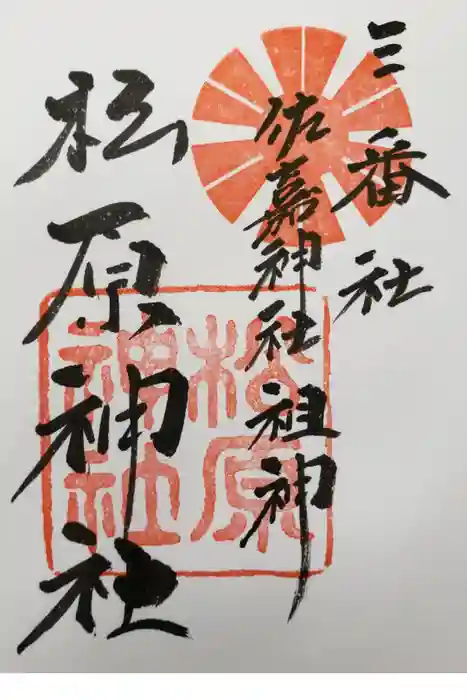 三番社
佐嘉神社祖神
松原神社
松原
神社